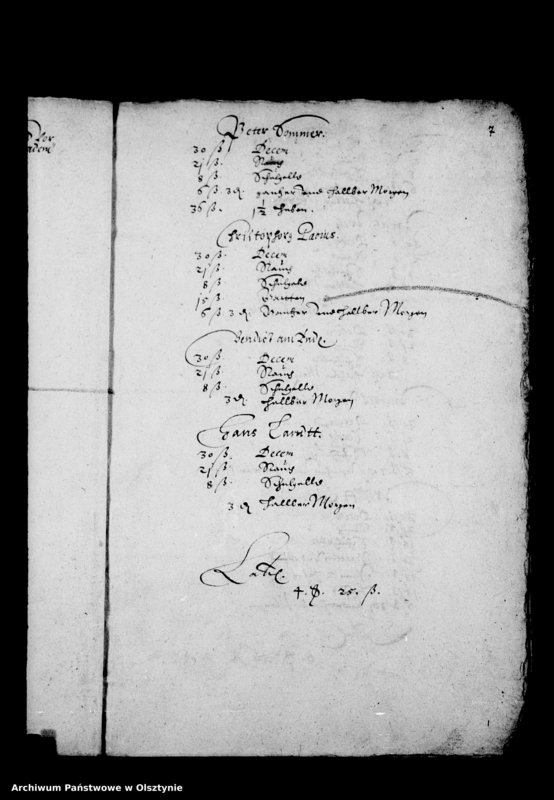 7
Peter Sommer.
30 ß. Decem
21 ß. Rauch
8 ß. Schulgeltt
6 ß. 3 ₰. gantzer und halber Morgen
36 ß. 1½ Huben.
Christophorg
30 ß. Decem
21 ß. Rauch
8 ß. Schulgelt
15 ß. Gartten
6 ß. 3 ₰. Gantzer und halber Morgen
Benedict am Ende.
30 ß. Decem
21 ß. Rauch
8 ß. Schulgeltt
3 ₰ halber Morgen
Hans
30 ß. Decem
21 ß. Rauch
8 ß. Schulgeltt
3 ₰ halber Morgen
Lat.
4. 25. ß.
Archiwum Państwowe w Olsztynie